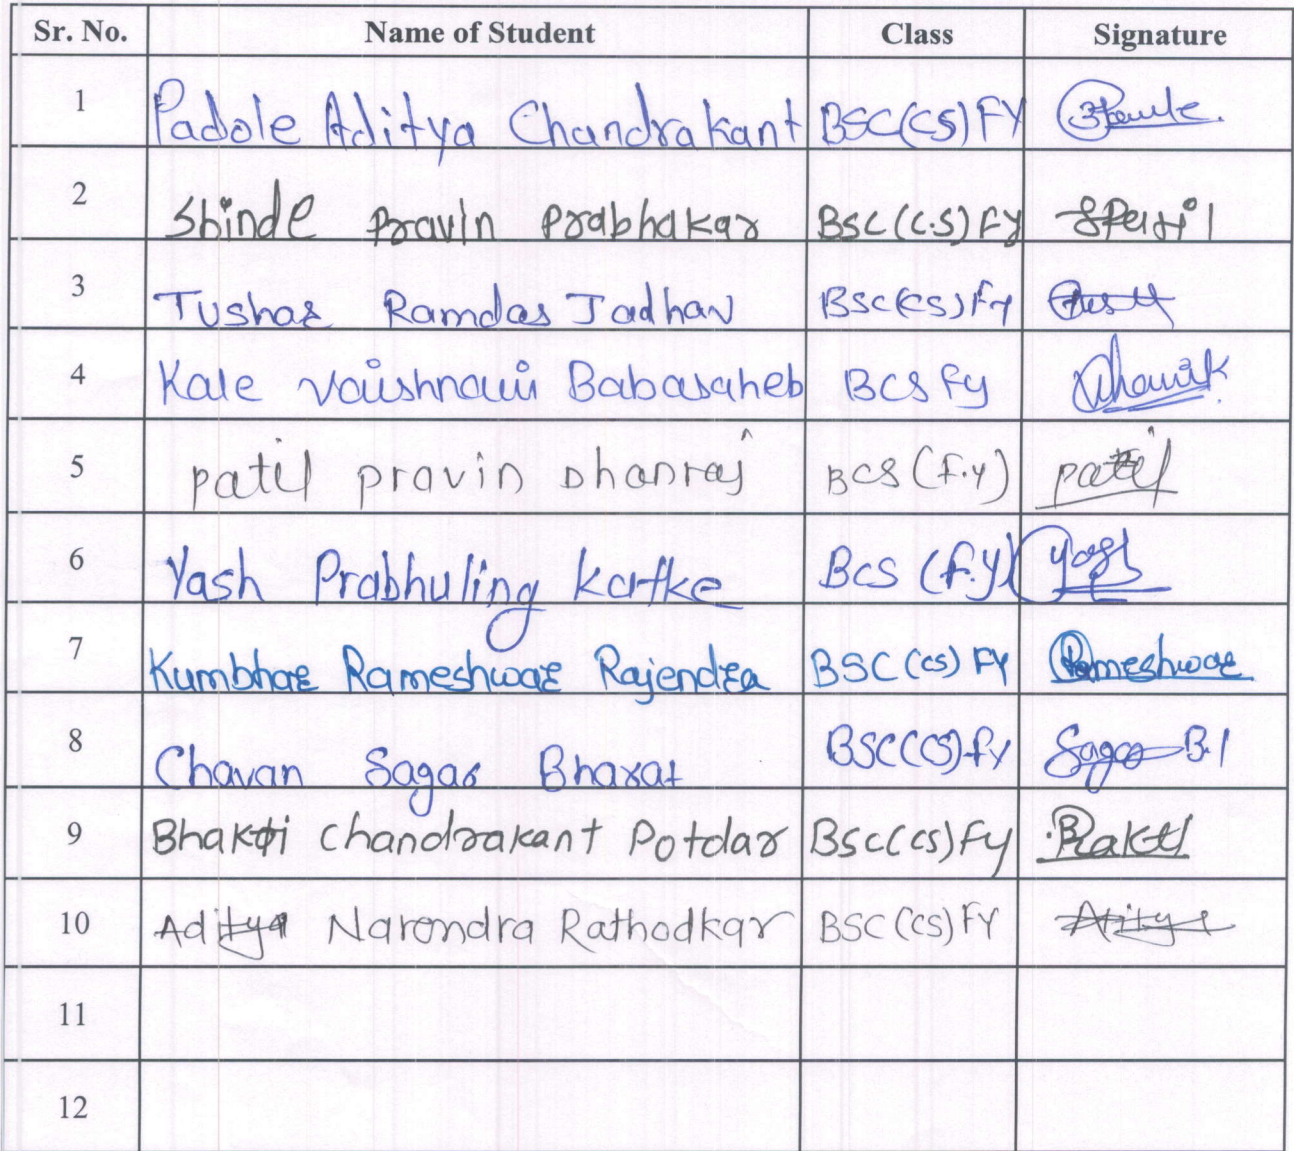 Sr. No. Name of Student Class Signature
1 Padole Aditya Chandrakant BSC(CS) FY
2 Shinde Pravin Prabhakar BSC(C.S) FY
3 Tushar Ramdas Jadhav BSC(CS) FY
4 Kale Vaishnavi Babasaheb BCS Fy
5 patil pravin Dhanraj BCS (F.y) patil
6 Yash Prabhuling Karke BCS (F.Y) Yash
7 Kumbhar Rameshwar Rajendra BSC (CS) FY Rameshwar
8 Chavan Sagar Bharat BSC(CS) FY Sagar B.
9 Bhakti Chandrakant Potdar BSC(CS) FY Bhakti
10 Aditya Narendra Rathodkar BSC (CS) FY Aditya
11
12